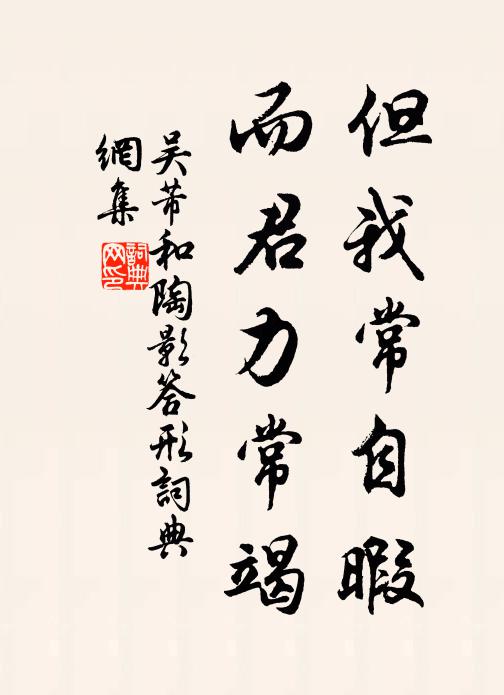 但我常自暇
而君力常竭
吳芾和陶影答形詞典
網集
詞典網印